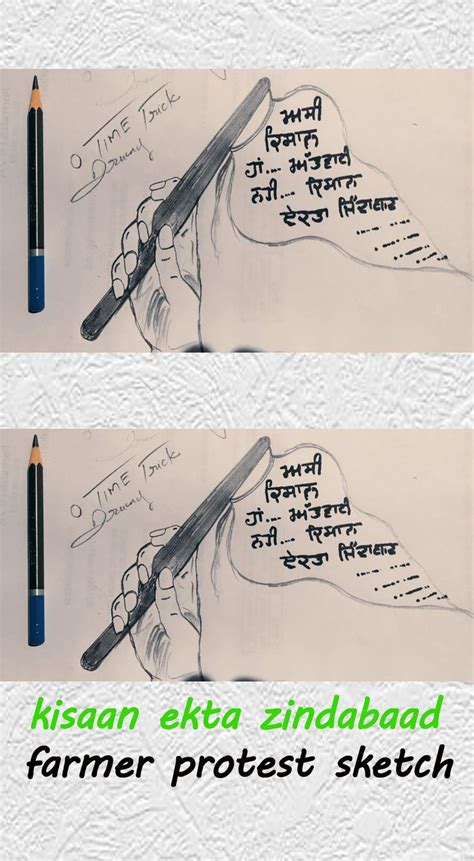 TIME Trick
Drawing
ਅਸੀ
ਕਿਸਾਨ
ਹਾਂ.... ਅੱਤਵਾਦੀ
ਨਹੀ.... ਕਿਸਾਨ
ਏਕਤਾ ਜਿੰਦਾਬਾਦ
TIME Trick
Drawing
ਅਸੀ
ਕਿਸਾਨ
ਹਾਂ.... ਅੱਤਵਾਦੀ
ਨਹੀ.... ਕਿਸਾਨ
ਏਕਤਾ ਜਿੰਦਾਬਾਦ
kisaan ekta zindabaad
farmer protest sketch